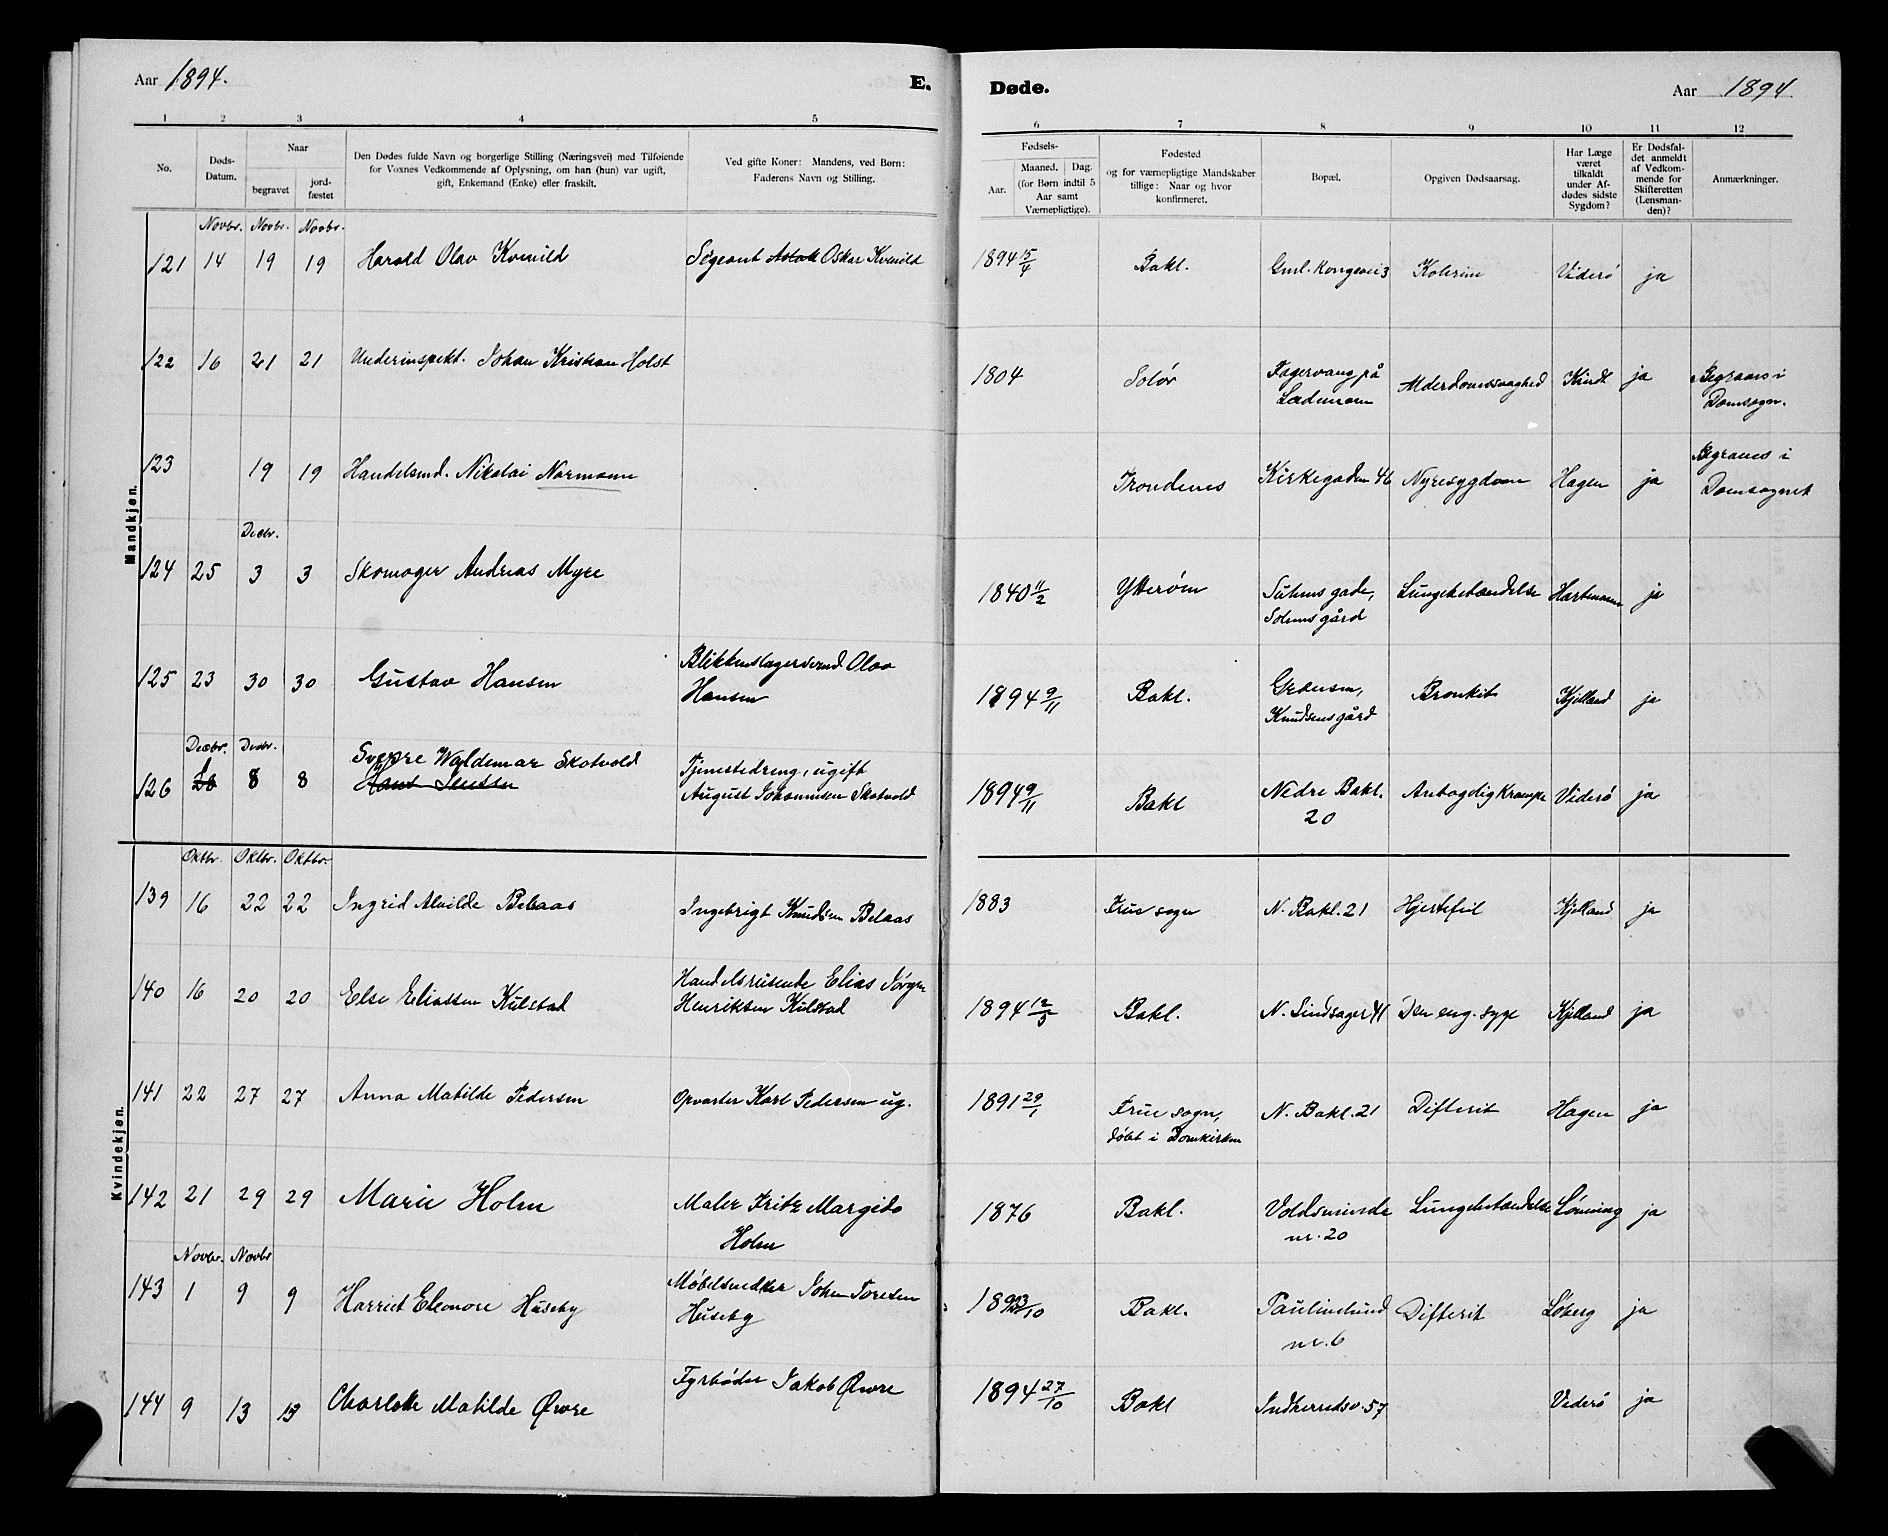 Aar 1894.
E.
Døde.
Aar 1894
1 2 3 4 5 6 7 8 9 10 11 12
No.
Døds-
Datum.
Naar
begravet
jord-
fæstet
Den Dødes fulde Navn og borgerlige Stilling (Næringsvei) med Tilføiende
for Voxnes Vedkommende af Oplysning, om han (hun) var ugift,
gift, Enkemand (Enke) eller fraskilt.
Ved gifte Koner: Mandens, ved Børn:
Faderens Navn og Stilling.
Fødsels-
Aar.
Maaned. Dag.
(for Børn indtil 5
Aar samt
Værnepligtige).
Fødested
og for værnepligtige Mandskaber
tillige: Naar og hvor
konfirmeret.
Bopæl.
Opgiven Dødsaarsag.
Har Læge
været
tilkaldt
under Af-
dødes sidste
Sygdom?
Er Dødsfal-
det anmeldt
af Vedkom-
mende for
Skifteretten
(Lensman-
den)?
Anmærkninger.
Mandkjøn.
Novbr. Novbr. Novbr.
121 14 19 19 Harald Olav Kvenild Sergeant Oskar Kvenild 1894 15/4 Bakl. Gml. Kongevei 3 Kolerine Viderö ja
122 16 21 21 Underinspekt. Johan Kristian Holst 1804 Solør Fagervang på Alderdomssvaghed Kindt ja Begraves i
Lademoen Domsogn.
123 19 19 Handelsmd. Nikolai Normann Trondenes Kirkegaden 46 Nyresygdom Hagen ja Begraves i
Domsognet
Decbr.
124 25 3 3 Skomager Andreas Myre 1840 11/2 Ytterøen Suhms gade, Lungebetændelse Hartmann ja
Solemsgård
125 23 30 30 Gustav Hansen Blikkenslagersvend Olav
Hansen 1894 9/11 Bakl. Bronkit Kjelland ja
Knudsensgård
Decbr. Decbr.
Sverre Waldemar Skotvold Tjenestedreng, ugift
126 8 8 Hans Jensen August Johannesen Skotvold 1894 9/11 Bakl Nedre Bakl. Krampe Viderö ja
20
Kvindekjøn.
Oktbr. Oktbr. Oktbr.
139 16 22 22 Ingrid Alvilde Belaas Ingebrigt Knudsen Belaas 1883 Frue sogn N. Bakl. 21 Hjertefeil Kjelland ja
140 16 20 20 Else Eliassen Kulstad Handelsreisende Elias Jörgen
Henriksen Kulstad 1894 12/3 Bakl. N. Lindsager 41 Den eng. syge Kjelland ja
141 22 27 27 Anna Matilde Pedersen Opvarter Karl Pedersen ug. 1891 29/1 Frue sogn, N. Bakl. 21 Difterit Hagen ja
døbt i Domkirken
142 21 29 29 Marie Holm Maler Fritz Margido
Holm 1876 Bakl. Voldsminde Lungebetændelse Lønning ja
nr. 20
Novbr. Novbr
143 1 9 9 Harriet Eleonore Huseby Møbelsnedker John Toresen
Huseby Bakl. Paulinelund Difterit Løberg ja
nr. 6
144 9 13 13 Charlotte Matilde Øvre Fyrbøder Jakob Øvre 1894 27/10 Bakl Indherredsv. 57 Viderö ja